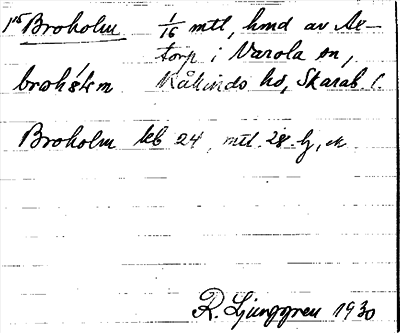 Broholm 1/16 mtl, hmd av Ac-
torp i Varola sn,
Kåkinds hd, Skarab. l.
Broholm kb 24, mtl. 28. fj, ek
R. Ljunggren 1930